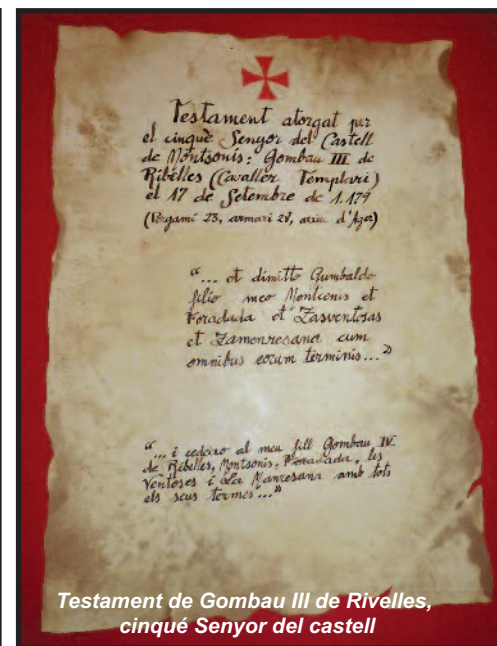 Testament atorgat per
el cinquè Senyor del Castell
de Montsonis: Gombau III de
Ribelles (Cavaller Templari)
el 17 de Setembre de 1.179
(Pergamí 23, armari 28, arxiu d'Ager)
“... et dimitto Gumbaldo
filio meo Montconis et
Foradada et Zasventosas
et Zamenresana cum
omnibus eorum terminis...”
“... i cedeixo al meu fill Gombau IV
de Ribelles, Montsonis, Foradada, les
Ventoses i La Manresana amb tots
els seus termes...”
Testament de Gombau III de Rivelles,
cinqué Senyor del castell